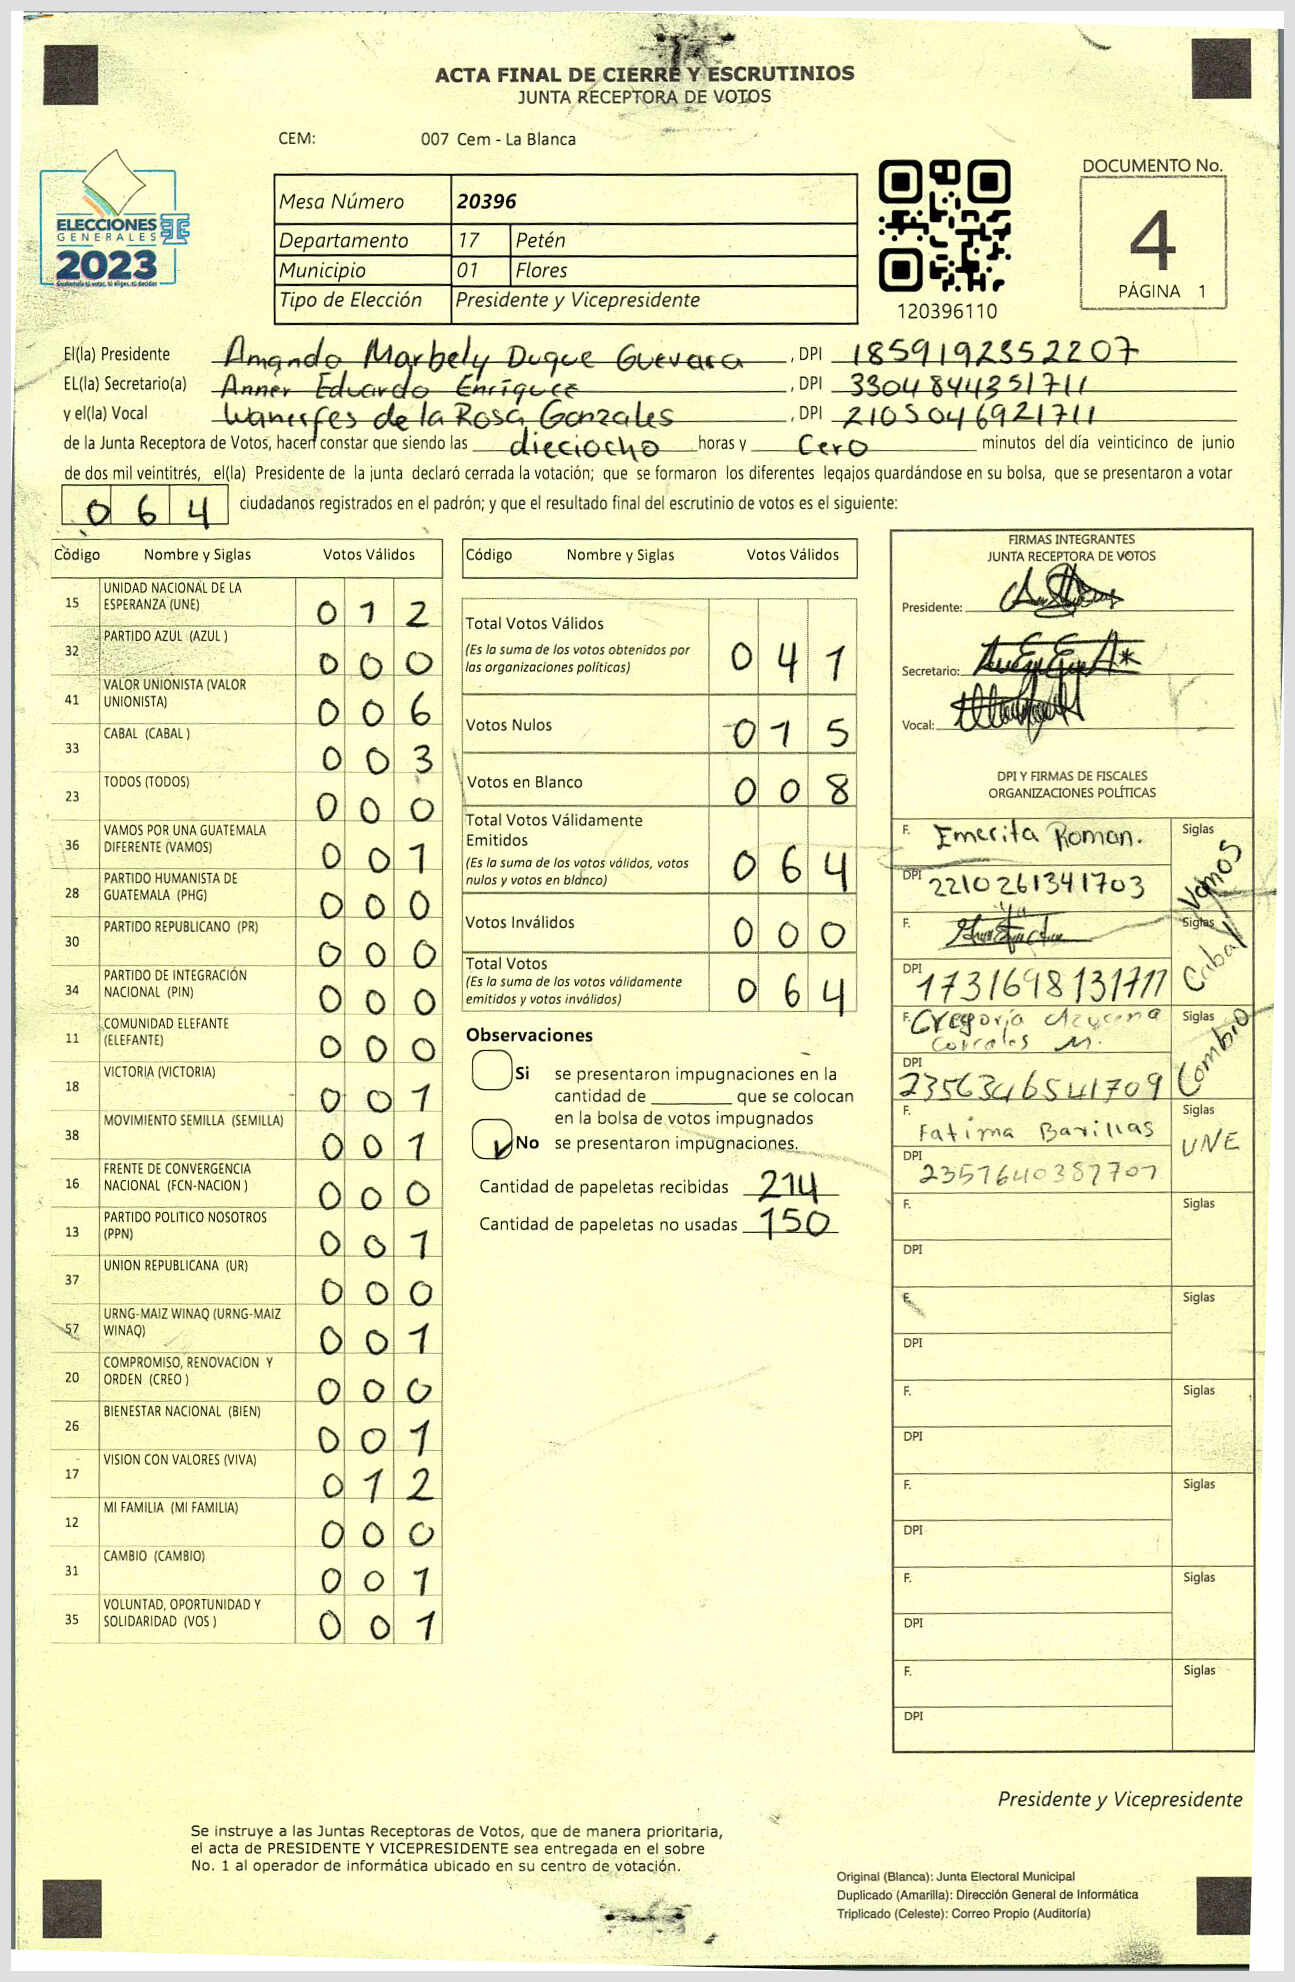 ACTA FINAL DE CIERRE Y ESCRUTINIOS
JUNTA RECEPTORA DE VOTOS
CEM: 007 Cem - La Blanca
ELECCIONES
GENERALES
2023
Mesa Número 20396
Departamento 17 Petén
Municipio 01 Flores
Tipo de Elección Presidente y Vicepresidente
120396110
DOCUMENTO No.
4
PÁGINA 1
El(la) Presidente Amanda Marbely Duque Guevara , DPI 1859192352207
EL(la) Secretario(a) Anner Eduardo Enríquez , DPI 3304844351711
y el(la) Vocal Wanerfes de la Rosa Gonzales , DPI 2105046921711
de la Junta Receptora de Votos, hacen constar que siendo las dieciocho horas y Cero minutos del día veinticinco de junio
de dos mil veintitrés, el(la) Presidente de la junta declaró cerrada la votación; que se formaron los diferentes legajos quardándose en su bolsa, que se presentaron a votar
064 ciudadanos registrados en el padrón; y que el resultado final del escrutinio de votos es el siguiente:
Código Nombre y Siglas Votos Válidos
15 UNIDAD NACIONAL DE LA ESPERANZA (UNE) 012
32 PARTIDO AZUL (AZUL ) 000
41 VALOR UNIONISTA (VALOR UNIONISTA) 006
33 CABAL (CABAL ) 003
23 TODOS (TODOS) 000
36 VAMOS POR UNA GUATEMALA DIFERENTE (VAMOS) 001
28 PARTIDO HUMANISTA DE GUATEMALA (PHG) 000
30 PARTIDO REPUBLICANO (PR) 000
34 PARTIDO DE INTEGRACIÓN NACIONAL (PIN) 000
11 COMUNIDAD ELEFANTE (ELEFANTE) 000
18 VICTORIA (VICTORIA) 001
38 MOVIMIENTO SEMILLA (SEMILLA) 001
16 FRENTE DE CONVERGENCIA NACIONAL (FCN-NACION ) 000
13 PARTIDO POLITICO NOSOTROS (PPN) 001
37 UNION REPUBLICANA (UR) 000
57 URNG-MAIZ WINAQ (URNG-MAIZ WINAQ) 001
20 COMPROMISO, RENOVACION Y ORDEN (CREO ) 000
26 BIENESTAR NACIONAL (BIEN) 001
17 VISION CON VALORES (VIVA) 012
12 MI FAMILIA (MI FAMILIA) 000
31 CAMBIO (CAMBIO) 001
35 VOLUNTAD, OPORTUNIDAD Y SOLIDARIDAD (VOS ) 001
Código Nombre y Siglas Votos Válidos
Total Votos Válidos 041
(Es la suma de los votos obtenidos por
las organizaciones políticas)
Votos Nulos 015
Votos en Blanco 008
Total Votos Válidamente
Emitidos 064
(Es la suma de los votos válidos, votos
nulos y votos en blanco)
Votos Inválidos 000
Total Votos 064
(Es la suma de los votos válidamente
emitidos y votos inválidos)
Observaciones
Si se presentaron impugnaciones en la
cantidad de ________ que se colocan
en la bolsa de votos impugnados
No se presentaron impugnaciones.
Cantidad de papeletas recibidas 214
Cantidad de papeletas no usadas 150
FIRMAS INTEGRANTES
JUNTA RECEPTORA DE VOTOS
Presidente:
Secretario:
Vocal:
DPI Y FIRMAS DE FISCALES
ORGANIZACIONES POLÍTICAS
F. Emerita Roman. Siglas Vamos
DPI 2210261341703
F. Siglas Cabal
DPI 1731698131711
F. Gregoria Azucena Corrales M. Siglas Cambio
DPI 2356346541709
F. Fatima Barillas Siglas UNE
DPI 2357640387701
F. Siglas
DPI
F. Siglas
DPI
F. Siglas
DPI
F. Siglas
DPI
F. Siglas
DPI
F. Siglas
DPI
Presidente y Vicepresidente
Se instruye a las Juntas Receptoras de Votos, que de manera prioritaria,
el acta de PRESIDENTE Y VICEPRESIDENTE sea entregada en el sobre
No. 1 al operador de informática ubicado en su centro de votación.
Original (Blanca): Junta Electoral Municipal
Duplicado (Amarilla): Dirección General de Informática
Triplicado (Celeste): Correo Propio (Auditoría)